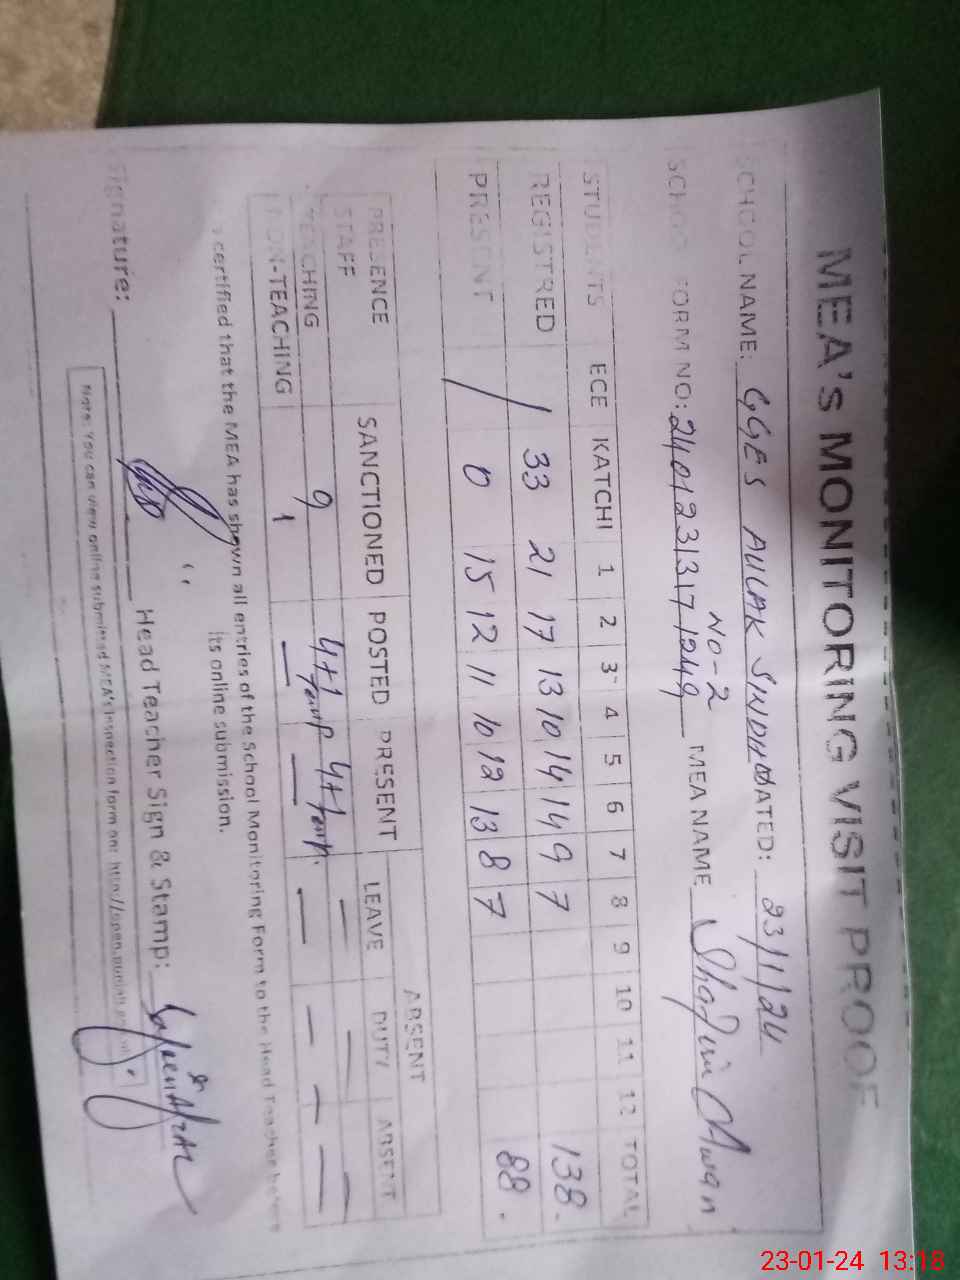 MEA's MONITORING VISIT PROOF
SCHOOL NAME: GGES AULAK SINDHO DATED: 23/1/24
NO-2
SCHOOL FORM NO: 24012313171249 MEA NAME Awan
STUDENTS ECE KATCHI 1 2 3 4 5 6 7 8 9 10 11 12 TOTAL
REGISTRED / 33 21 17 13 10 14 14 9 7 138.
PRESENT / 0 15 12 11 10 12 13 8 7 88.
ABSENT
PRESENCE SANCTIONED POSTED PRESENT LEAVE DUTY ABSENT
STAFF
TEACHING 9 4+1 4+1 — — —
NON-TEACHING 1 — — — — —
certified that the MEA has shown all entries of the School Monitoring Form to the Head Teacher before
its online submission.
Signature: Head Teacher Sign & Stamp:
Note: You can view online submitted MEA's inspection form on: http://open.punjab
23-01-24 13:18